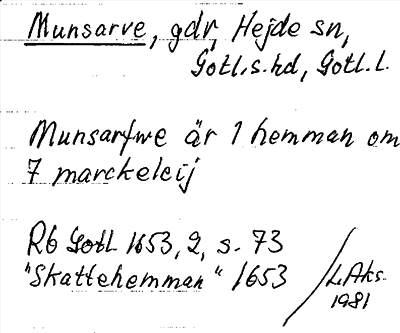 Munsarve, gdr, Hejde sn,
Gotl.s.hd, Gotl.l.
Munsarfwe är 1 hemman om
7 marckeleij
Rb Gotl 1653, 2, s. 73
"Skattehemman" 1653
L.Aks.
1981